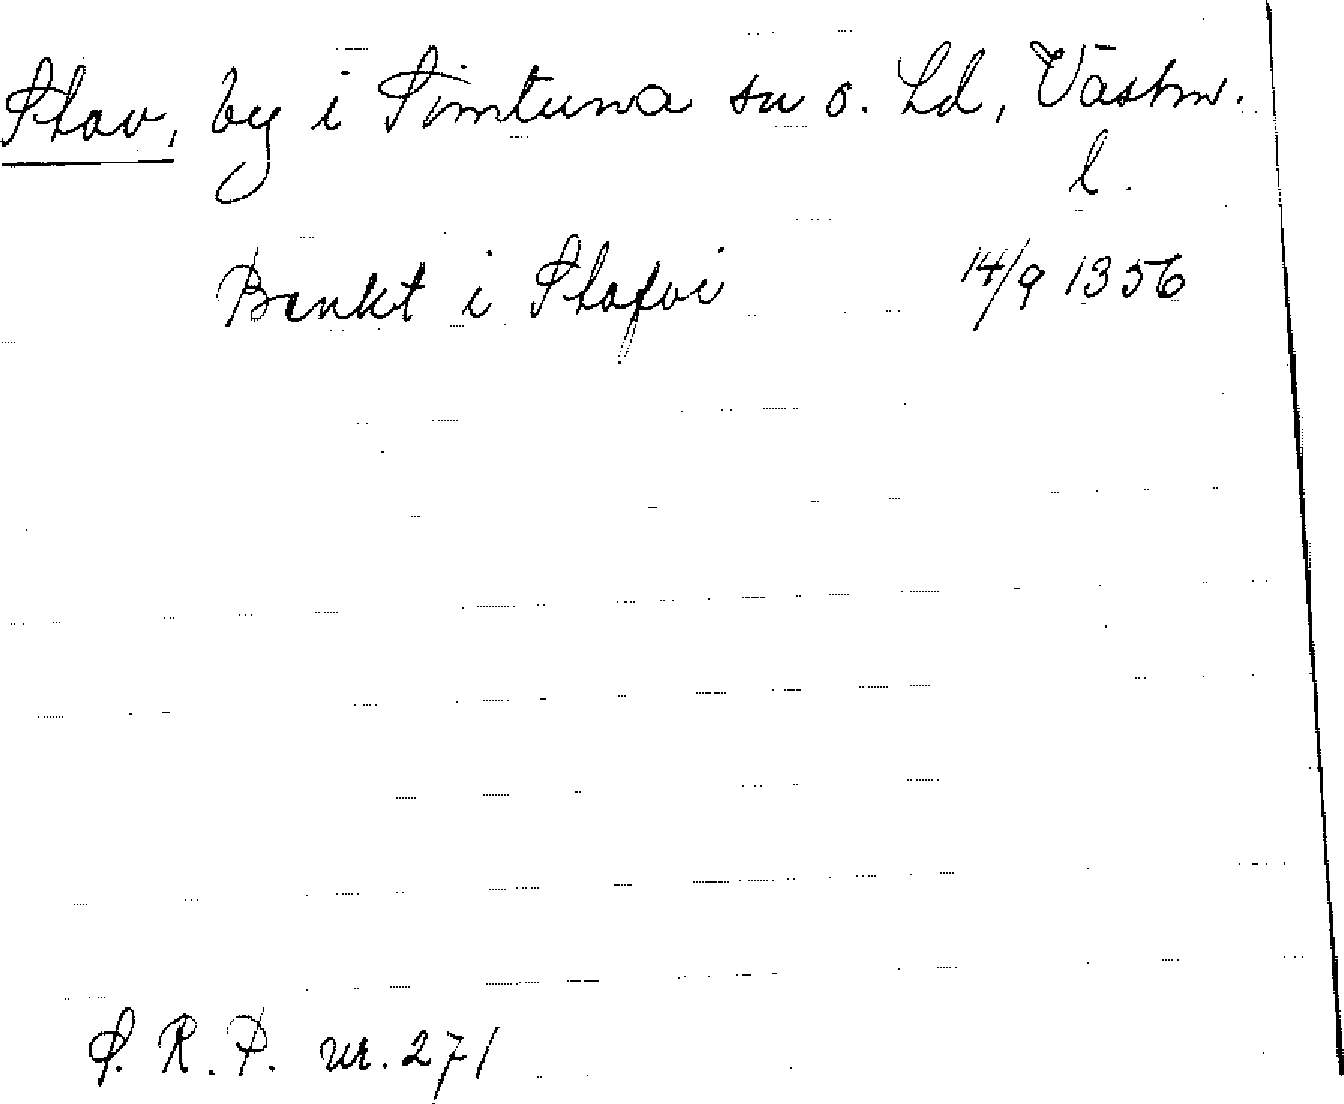 Stav, by i Simtuna sn o. hd, Västm.
l.
Benkt i Stafwi 14/9 1356
S. R. P. nr. 271